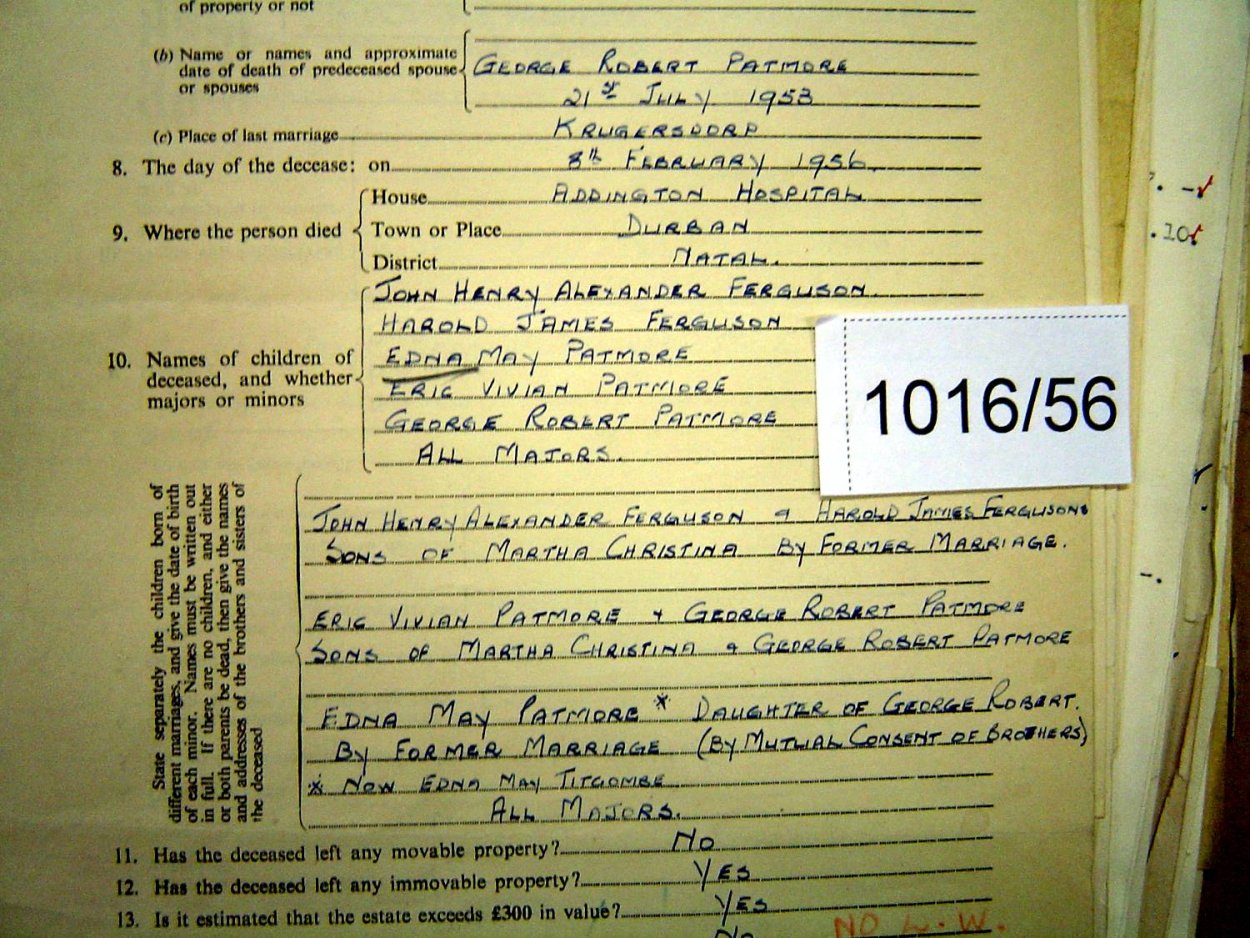 of property or not
(b) Name or names and approximate
date of death of predeceased spouse
or spouses
GEORGE ROBERT PATMORE
21st JULY 1953
(c) Place of last marriage KRUGERSDORP
8. The day of the decease: on 8th FEBRUARY 1956.
9. Where the person died
House ADDINGTON HOSPITAL
Town or Place DURBAN
District NATAL.
10. Names of children of
deceased, and whether
majors or minors
JOHN HENRY ALEXANDER FERGUSON.
HAROLD JAMES FERGUSON
EDNA MAY PATMORE
ERIC VIVIAN PATMORE
GEORGE ROBERT PATMORE
ALL MAJORS.
1016/56
10
State separately the children born of
different marriages, and give the date of birth
of each minor. Names must be written out
in full. If there are no children, and either
or both parents be dead, then give the names
and addresses of the brothers and sisters of
the deceased
JOHN HENRY ALEXANDER FERGUSON & HAROLD JAMES FERGUSON
SONS OF MARTHA CHRISTINA BY FORMER MARRIAGE.
ERIC VIVIAN PATMORE & GEORGE ROBERT PATMORE
SONS OF MARTHA CHRISTINA & GEORGE ROBERT PATMORE
EDNA MAY PATMORE * DAUGHTER OF GEORGE ROBERT.
BY FORMER MARRIAGE (BY MUTUAL CONSENT OF BROTHERS)
* NOW EDNA MAY TITCOMBE
ALL MAJORS.
11. Has the deceased left any movable property? NO
12. Has the deceased left any immovable property? YES
13. Is it estimated that the estate exceeds £300 in value? YES
No
NO L.W.